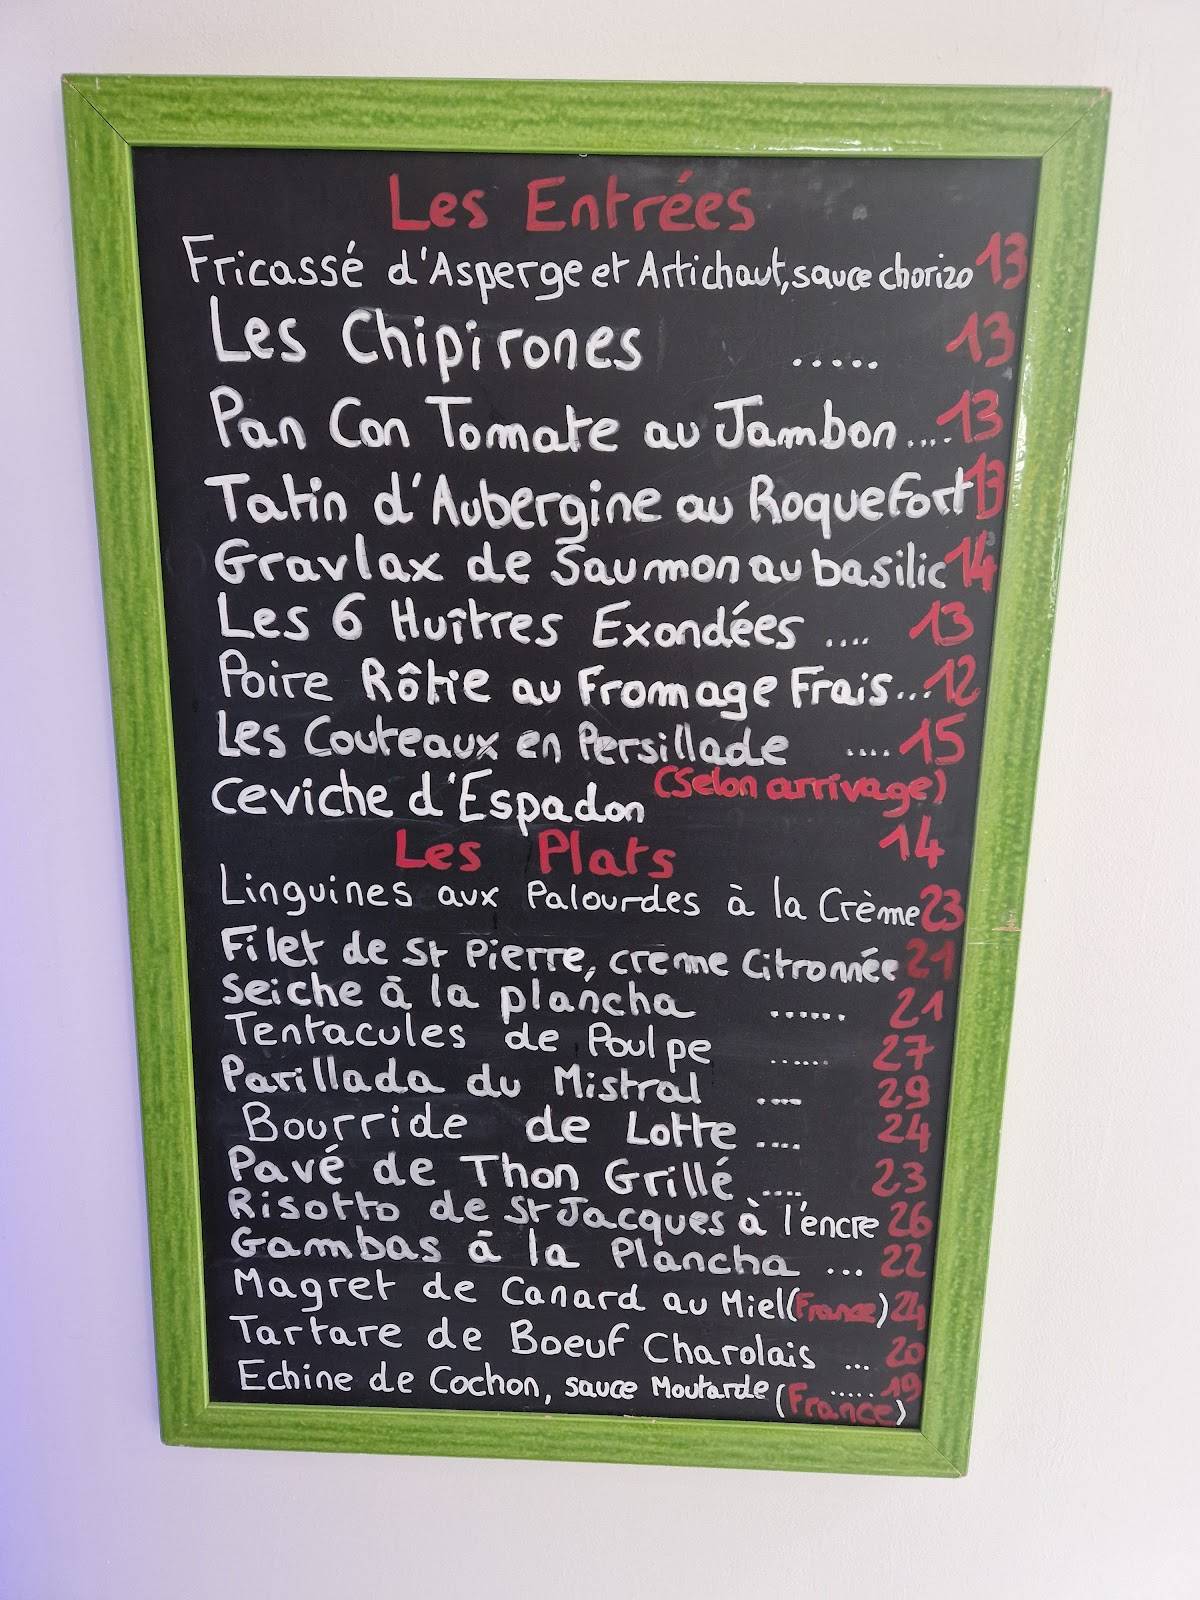 Les Entrées
Fricassé d'Asperge et Artichaut, sauce chorizo 13
Les Chipirones ..... 13
Pan Con Tomate au Jambon .... 13
Tatin d'Aubergine au Roquefort 13
Gravlax de Saumon au basilic 14
Les 6 Huîtres Exondées .... 13
Poire Rôtie au Fromage Frais... 12
Les Couteaux en Persillade .... 15
(Selon arrivage)
Ceviche d'Espadon 14
Les Plats
Linguines aux Palourdes à la Crème 23
Filet de St Pierre, creme Citronnée 21
Seiche à la plancha ...... 21
Tentacules de Poulpe ...... 27
Parillada du Mistral .... 29
Bourride de Lotte .... 24
Pavé de Thon Grillé .... 23
Risotto de St Jacques à l'encre 26
Gambas à la Plancha ... 22
Magret de Canard au Miel (France) 24
Tartare de Boeuf Charolais ... 20
Echine de Cochon, sauce Moutarde ..... 19
(France)